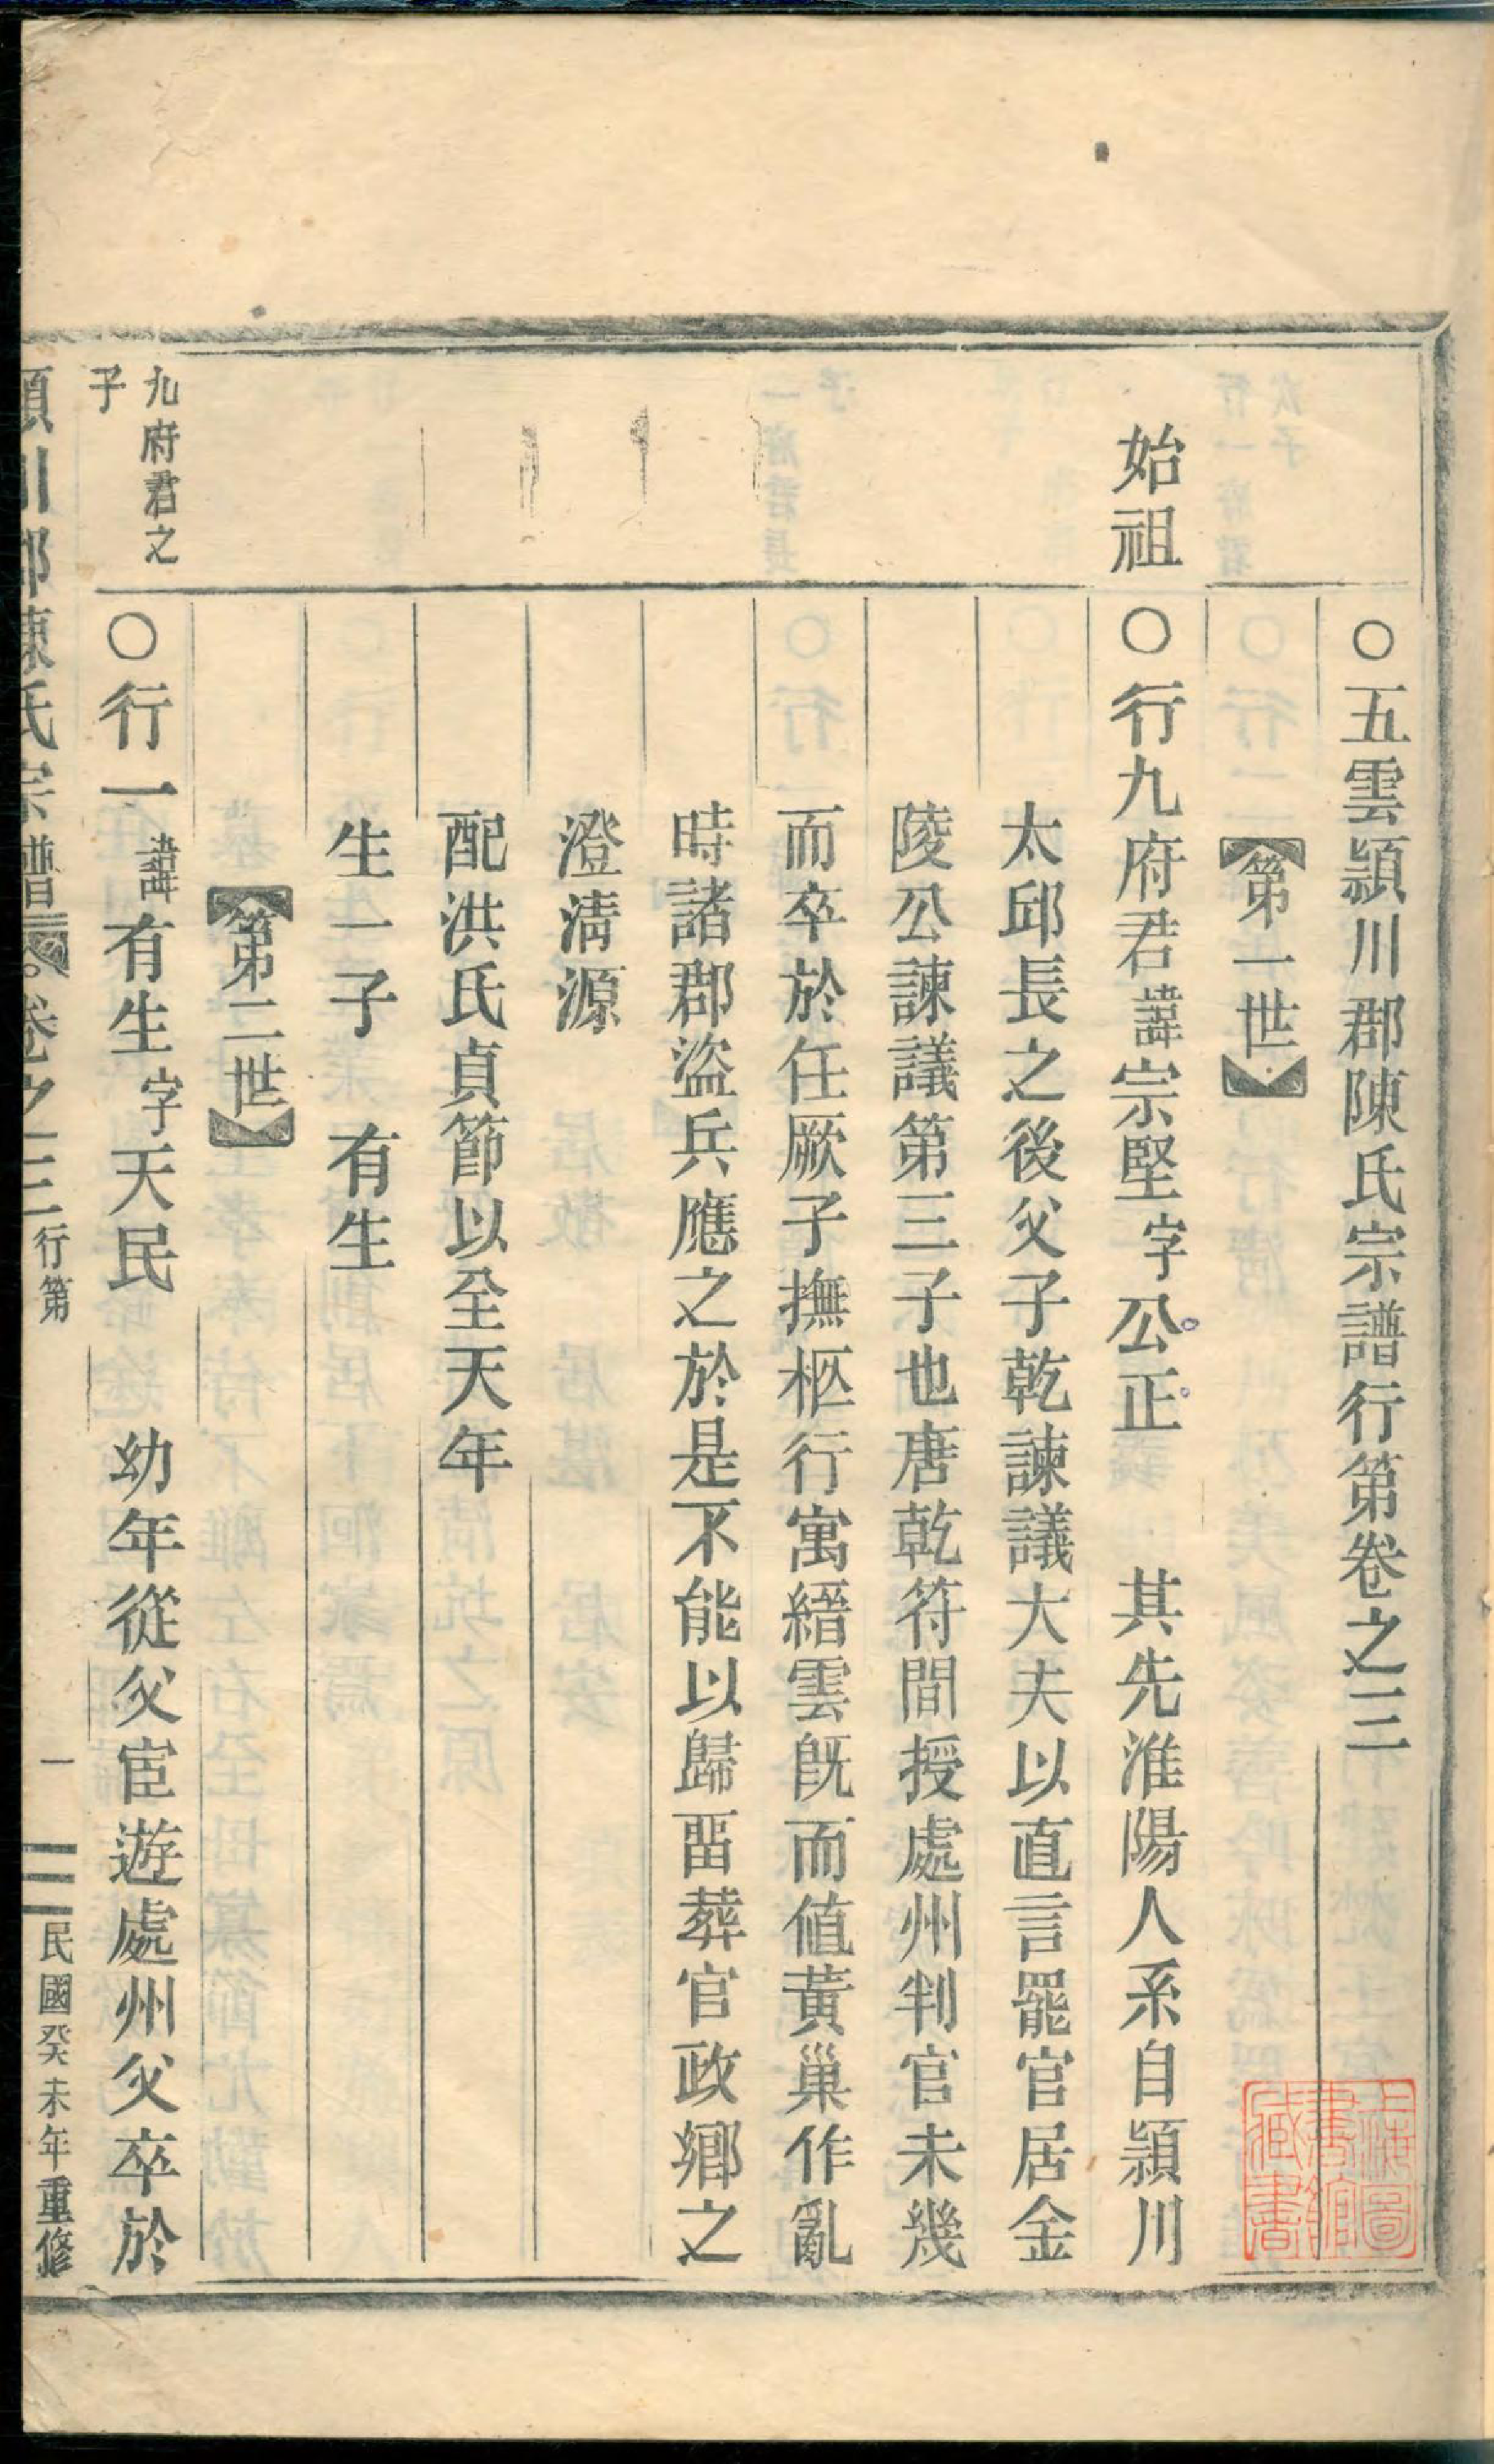 ○五雲頴川郡陳氏宗譜行第卷之三
【第一世】
始祖
○行九府君諱宗堅字公正　其先淮陽人系自頴川
太邱長之後父子乾諫議大夫以直言罷官居金
陵公諫議第三子也唐乾符間授處州判官未幾
而卒於任厥子撫柩行寓縉雲旣而值黃巢作亂
時諸郡盜兵應之於是不能以歸畱葬官政鄉之
澄清源
配洪氏貞節以全天年
生一子　有生
【第二世】
九府君之
子
○行一諱有生字天民　幼年從父宦遊處州父卒於
頴川郡陳氏宗譜　卷之三行第　一　民國癸未年重修
上海圖
書館
藏書